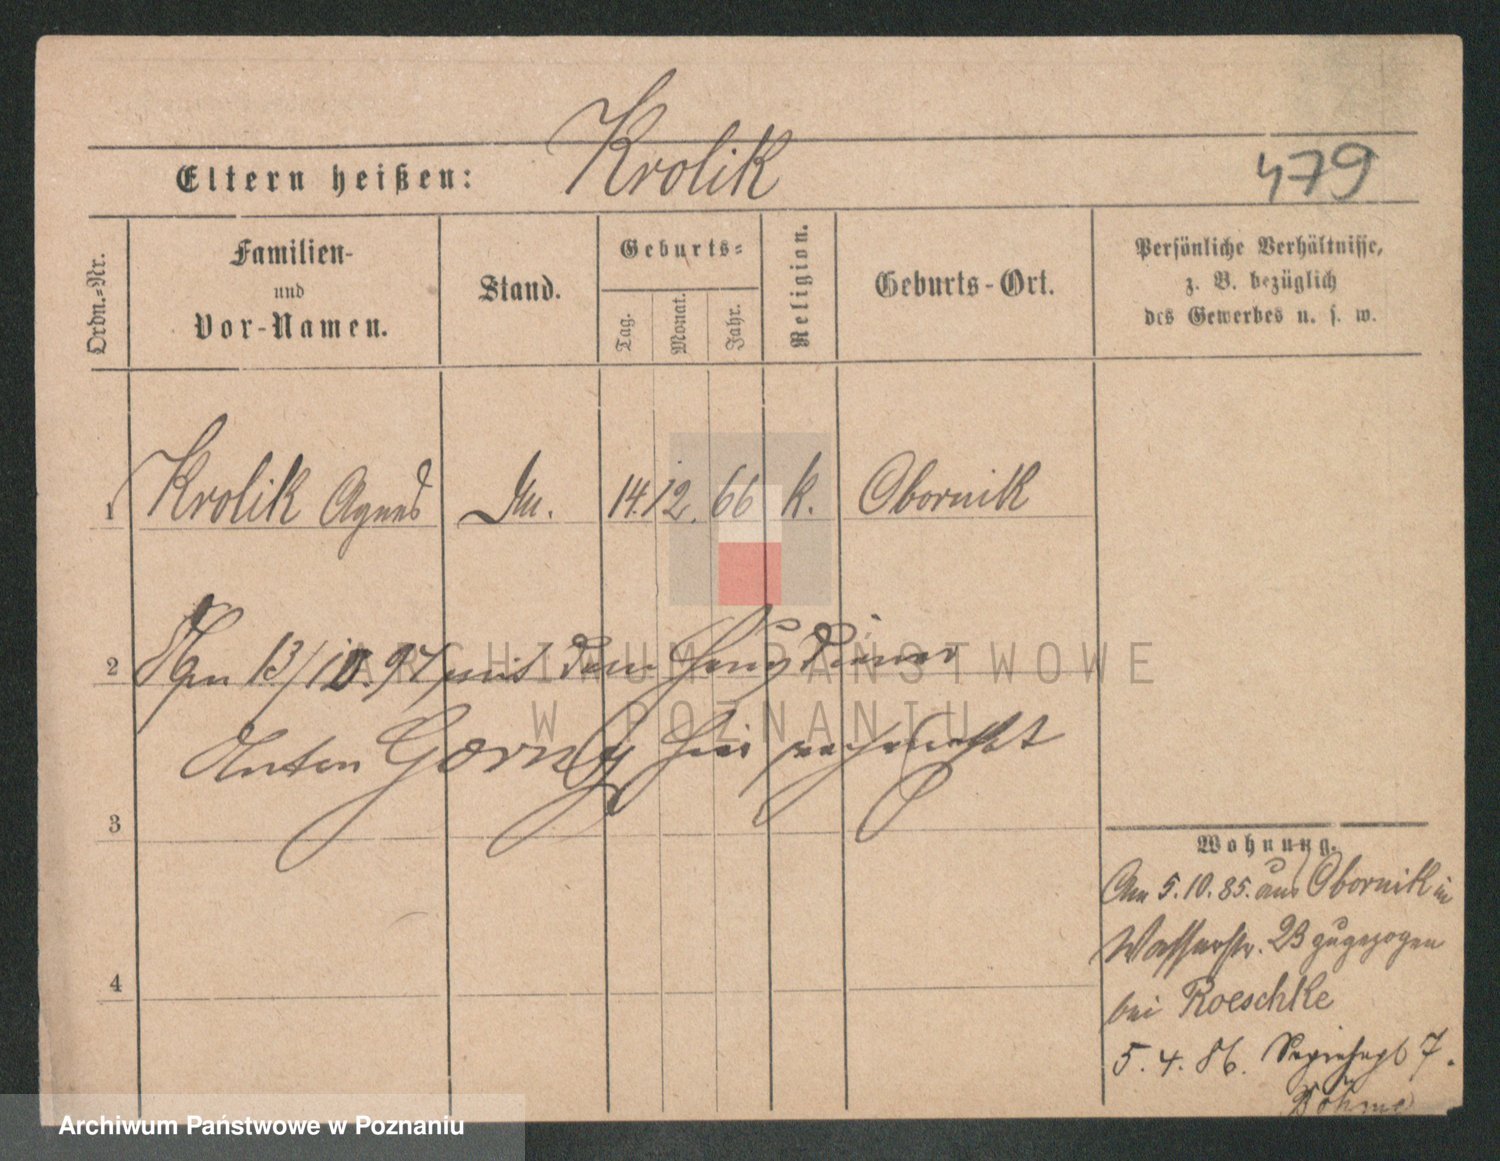 Krolik
Eltern heißen:
479
Ordn.-Nr.
Familien-
und
Vor-Namen.
Stand.
Geburts-
Tag.
Monat.
Jahr.
Religion.
Geburts-Ort.
Persönliche Verhältnisse,
z. B. bezüglich
des Gewerbes u. s. w.
1 Krolik Agnes 14. 12. 66 k. Obornik
2 13/10. 94 mit dem Hausdiener
Anton Gorny hier
3
4
Wohnung.
Am 5. 10. 85. aus Obornik in
Wasserstr. 23 zugezogen
bei Roeschke
5. 4. 86. 7.
Böhme
ARCHIWUM PAŃSTWOWE
W POZNANIU
Archiwum Państwowe w Poznaniu